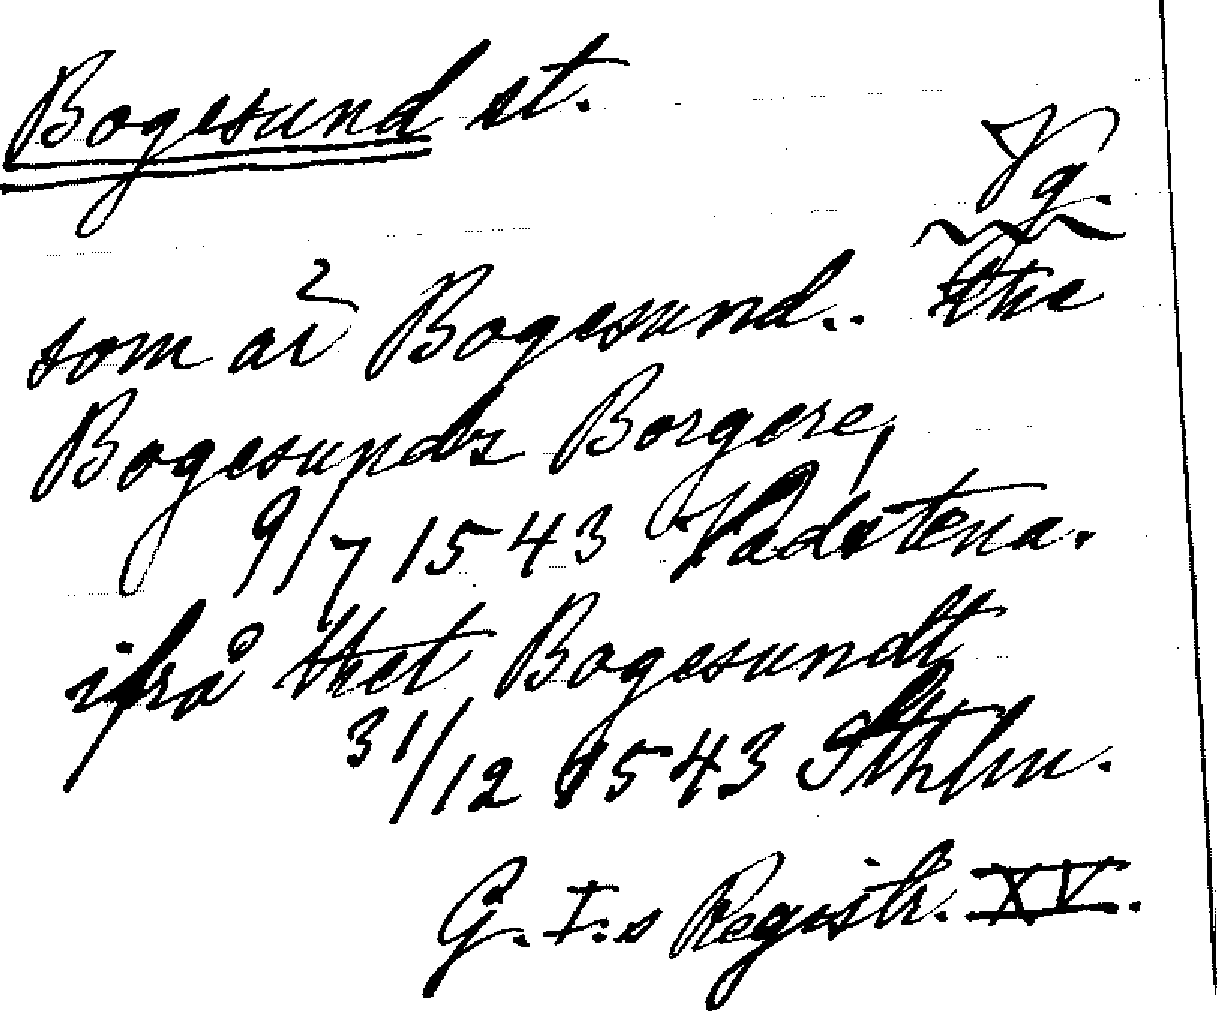 Bogesund st.
Vg.
som är Bogesund.. the
Bogesunds Borgere,
9/7 1543 Vadstena.
ifrå thet Bogesundt
31/12 1543 Sthlm.
G. I:s Registr. XV.